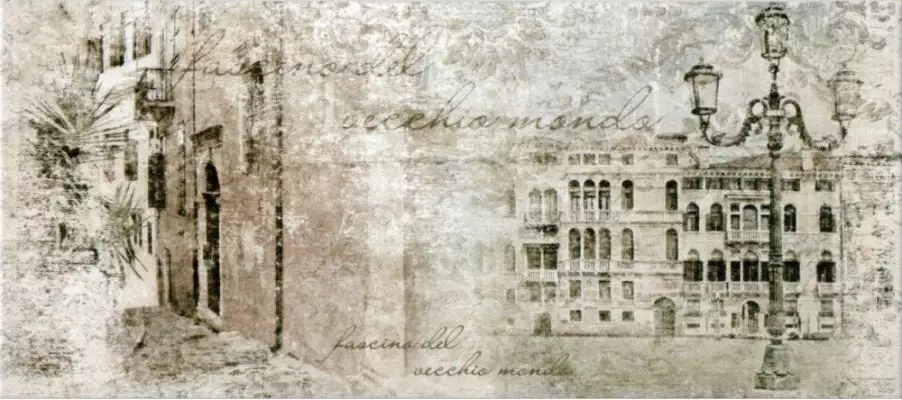 fascino del
vecchio mondo
fascino del
vecchio mondo